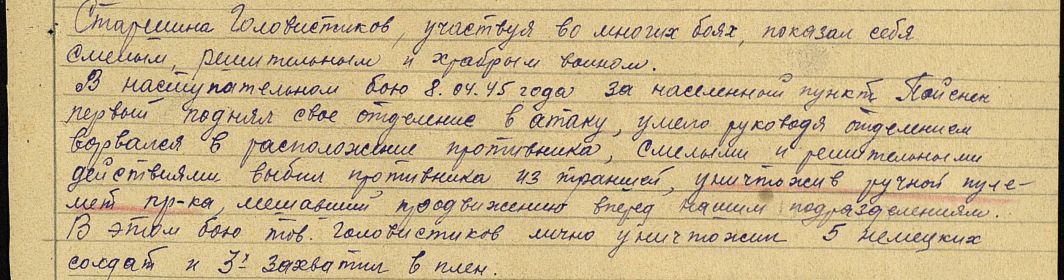 Старшина Головистиков, участвуя во многих боях, показал себя
смелым, решительным и храбрым воином.
В наступательном бою 8.04.45 года за населенный пункт Пойснен
первый поднял свое отделение в атаку, умело руководя отделением
ворвался в расположение противника, смелыми и решительными
действиями выбил противника из траншей, уничтожив ручной пуле-
мет пр-ка, мешавший продвижению вперед нашим подразделениям.
В этом бою тов. Головистиков лично уничтожил 5 немецких
солдат и 3х захватил в плен.